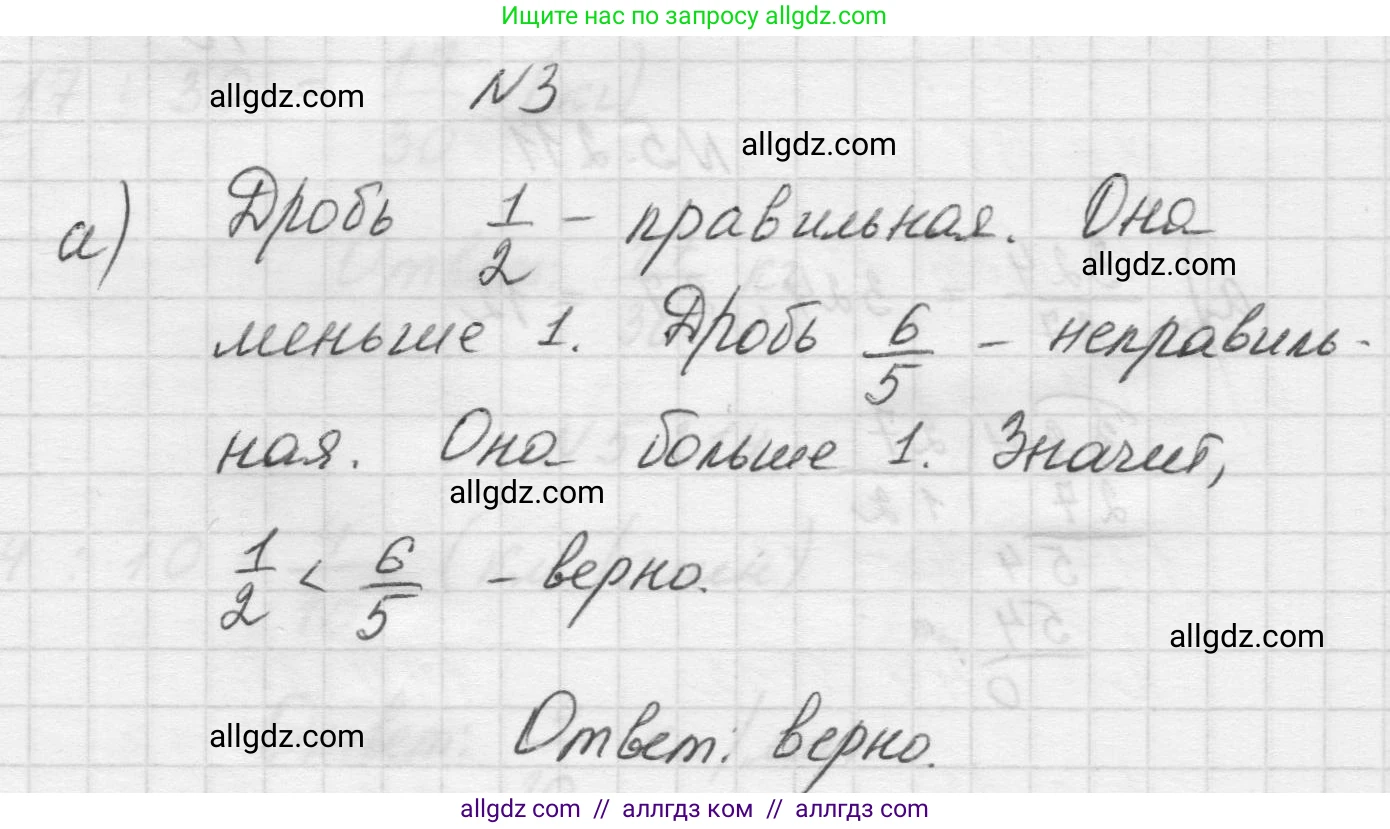 Ищите нас по запросу allgdz.com
allgdz.com
N3
allgdz.com
а) Дробь 1/2 - правильная. Она
allgdz.com
меньше 1. Дробь 6/5 - неправиль-
ная. Она больше 1. Значит,
allgdz.com
1/2 < 6/5 - верно.
allgdz.com
allgdz.com
Ответ: верно.
allgdz com // аллгдз ком // аллгдз com